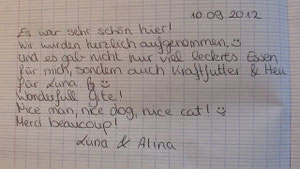 10.09.2012
Es war sehr schön hier!
Wir wurden herzlich aufgenommen,
und es gab nicht nur viel leckeres Essen
für mich, sondern auch Kraftfutter & Heu
für Luna.
Wonderfull Gite!
Nice man, nice dog, nice cat!
Merci beaucoup!
Luna & Alina